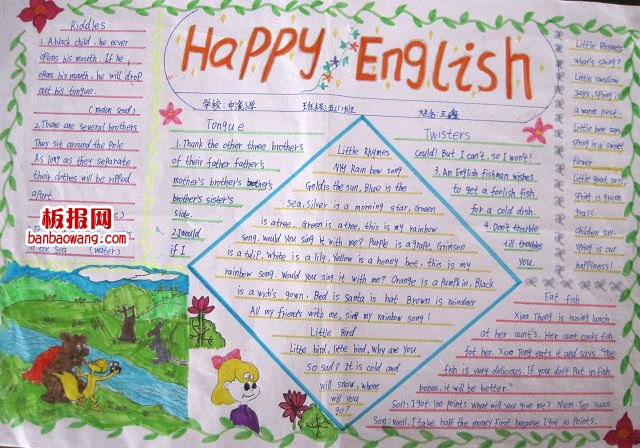 Happy English
学校:中滦小学 班级:五(1)班 姓名:王鑫
Riddles
1. A black child, he never
opens his mouth. If he
opens his mouth, he will drop
out his tongue.
(melon seed)
2. There are several brothers
They sit around the Pole
As long as they separate
their clothes will be ripped
apart.
in the sea (water)
板报网
banbaowang.com
Tongue
1. Thank the other three brothers
of their father father's
mother's brother's
brother's sister's
side.
2. I would
if I
Twisters
Could! But I can't, so I won't!
3. An English fishman wishes
to get a foolish fish
for a cold dish.
4. Don't trouble
till troubles
you.
Little Rhymes
My Rainbow song
Gold is the sun, Blue is the
sea, silver is a morning star, Green
is a tree, Green is a tree, this is my rainbow
song. would you sing it with me? Purple is a grape, Crimson
is a tulip, White is a lily, Yellow is a honey bee, this is my
rainbow song. Would you sing it with me? Orange is a Pumpkin, Black
is a wich's gown, Red is santa is hat Brown is reindeer
All my friends with me, sing my rainbow song!
Little Bird
Little bird, little bird, why are You
so sad? It is cold and
will snow, where
will you
go?
Little Rhymes
what's spring?
Little swallow
says, spring is
a warm nest.
Little bee says
spring is a sweet
flower.
Little goat says,
spring is green
grass.
children say:
spring is our
happiness!
Eat fish
Xiao Zhong is having lunch
at her aunt's. Her aunt cooks fish
for her. Xiao Tong eats it and says. "The
fish is very delicious. If you don't Put in fish
bones, it will be better."
Son: I got 100 Points what will you give me? Mom: Ten Yuan.
Son: well, I take half the money first because I got 50 Points.